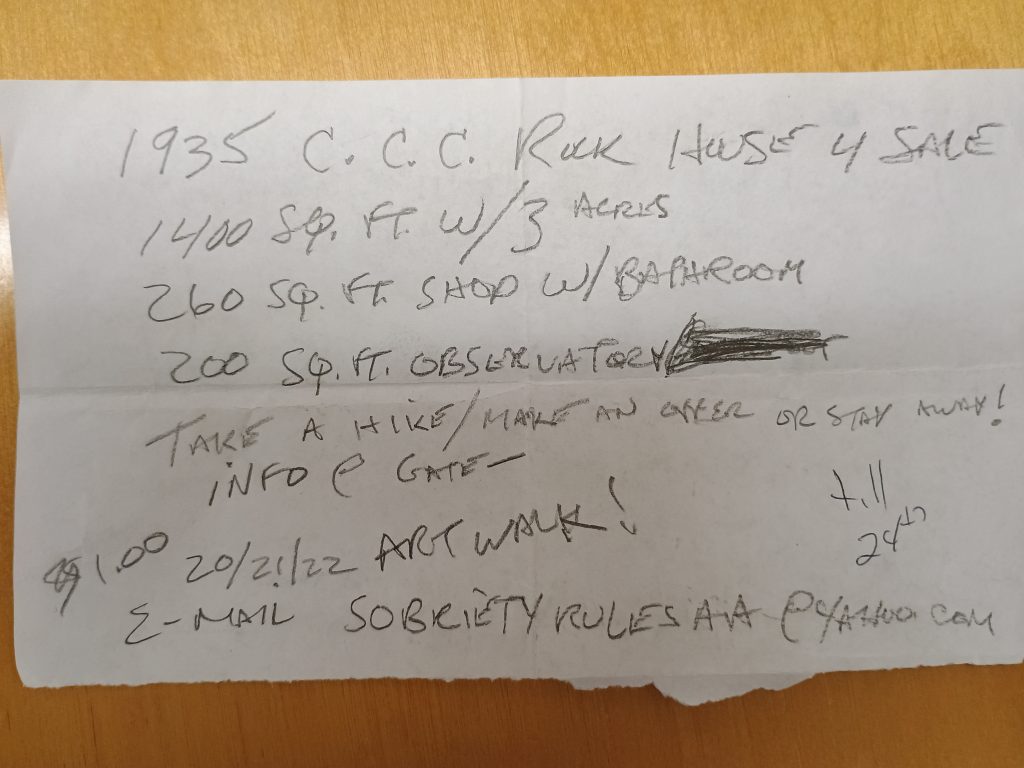 1935 C. C. C. ROCK HOUSE 4 SALE
1400 SQ. FT. W/3 ACRES
260 SQ. FT. SHOP W/BATHROOM
200 SQ. FT. OBSERVATORY
TAKE A HIKE/MAKE AN OFFER OR STAY AWAY!
INFO @ GATE—
$1.00 20/21/22 ART WALK!
till
24th
E-MAIL SOBRIETYRULESAA@YAHOO.COM